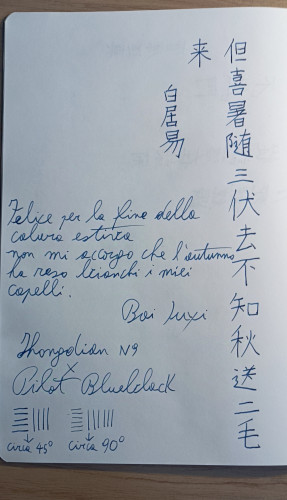 但喜暑随三伏去不知秋送二毛
来
白居易
Felice per la fine della
calura estiva
non mi accorgo che l'autunno
ha reso bianchi i miei
capelli.
Bai Juyi
Zhongdian N9
x
Pilot Blueblack
circa 45° circa 90°